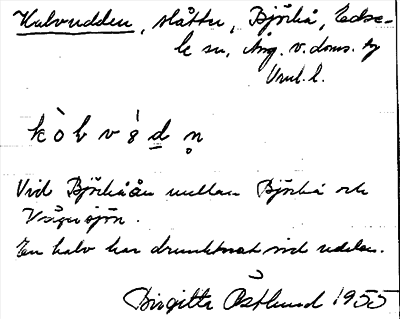 Kalvudden, slåtter, Björkå, Edse-
le sn, Ång. v. doms. by
Vml. l.
kòlvédn
Vid Björkåån mellan Björkå och
Vågsjön.
En kalv har drunknat vid udden.
Birgitta Östlund 1955